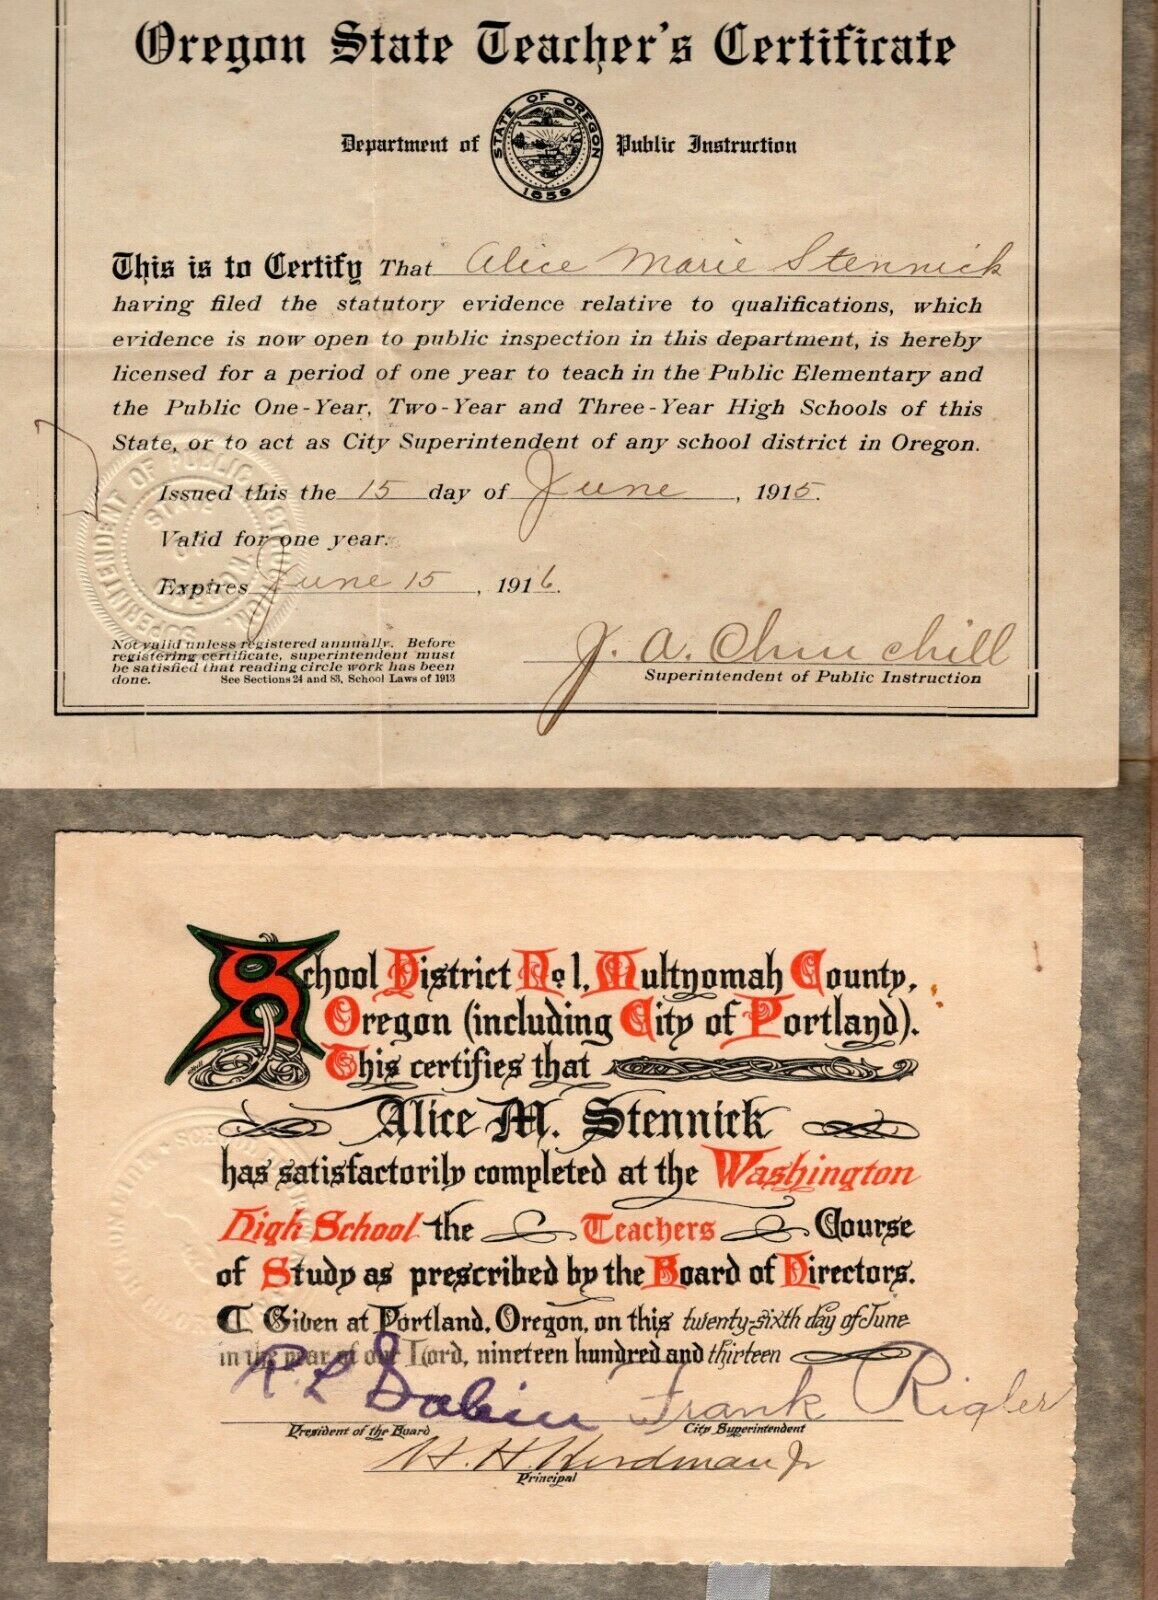 Oregon State Teacher's Certificate
Department of Public Instruction
STATE OF OREGON
1859
This is to Certify That Alice Marie Stennick
having filed the statutory evidence relative to qualifications, which
evidence is now open to public inspection in this department, is hereby
licensed for a period of one year to teach in the Public Elementary and
the Public One-Year, Two-Year and Three-Year High Schools of this
State, or to act as City Superintendent of any school district in Oregon.
Issued this the 15 day of June, 1915.
Valid for one year.
Expires June 15, 1916.
SUPERINTENDENT OF PUBLIC INSTRUCTION
STATE OF OREGON
Not valid unless registered annually. Before
registering certificate, superintendent must
be satisfied that reading circle work has been
done. See Sections 24 and 83, School Laws of 1913
J. A. Churchill
Superintendent of Public Instruction
School District No 1, Multnomah County,
Oregon (including City of Portland).
This certifies that
Alice M. Stennick
has satisfactorily completed at the Washington
High School the Teachers Course
of Study as prescribed by the Board of Directors.
Given at Portland, Oregon, on this twenty-sixth day of June
in the year of our Lord, nineteen hundred and thirteen
R. L. Sabin Frank Rigler
President of the Board City Superintendent
H. H. Herdman Jr
Principal